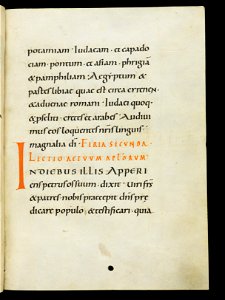 potamiam. Iudaeam. et capado
ciam. pontum. et asiam. phrigiā
& pamphiliam. Aegyptum &
partes libiae quae est circa cirenen.
& aduenae romani. Iudaei quoq;
& proseliti. cretes et arabes. Audiui
mus eos loquentes nr̄is linguis
magnalia dī. FERIA SECUNDA.
LECTIO ACTUUM APL̄ORUM.
IN DIEBUS ILLIS APPERI
ens petrus os suum. dixit. Uiri frs̄
& patres. nobis praecepit dn̄s prę
dicare populo. & testificari. quia